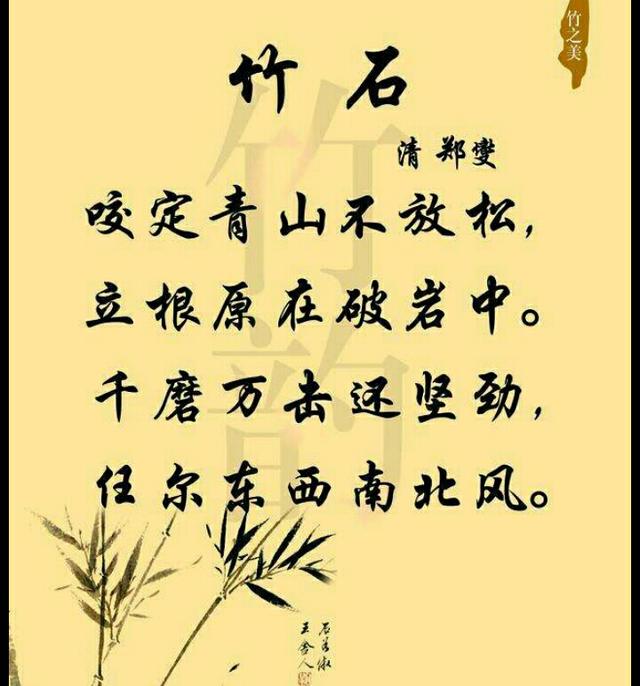 竹之美
竹石
清 郑燮
咬定青山不放松，
立根原在破岩中。
千磨万击还坚劲，
任尔东西南北风。
竹韵